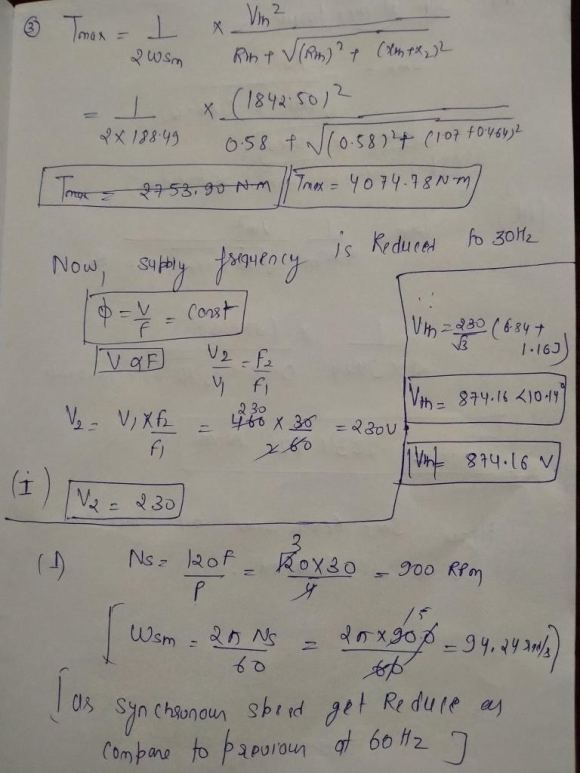 ③ Tmax = 1/2Wsm × Vth²/Rth + √(Rth)² + (xth+x2)²
= 1/2×188.49 × (1842.50)²/0.58 + √(0.58)² + (107 + 0.464)²
Tmax = 2753.90 N-m Tmax = 4074.78 N-m
Now, supply frequency is Reduced to 30Hz
Φ = V/f = Const
V α F V2/V1 = F2/F1
V2 = V1 × f2/f1 = 460 230 × 30/2 60 = 230V
(I) V2 = 230
∴ Vth = 230/√3 (6.84 + 1.16J)
Vth = 874.16 <10.14°
|Vth| = 874.16 V
(1) Ns = 120F/P = 120×30/4 3 = 900 RPm
[ Wsm = 2π Ns/60 = 2π×900/60 15 = 94.24 rad/s)
[as synchronous speed get Reduce as
compare to previous at 60Hz ]